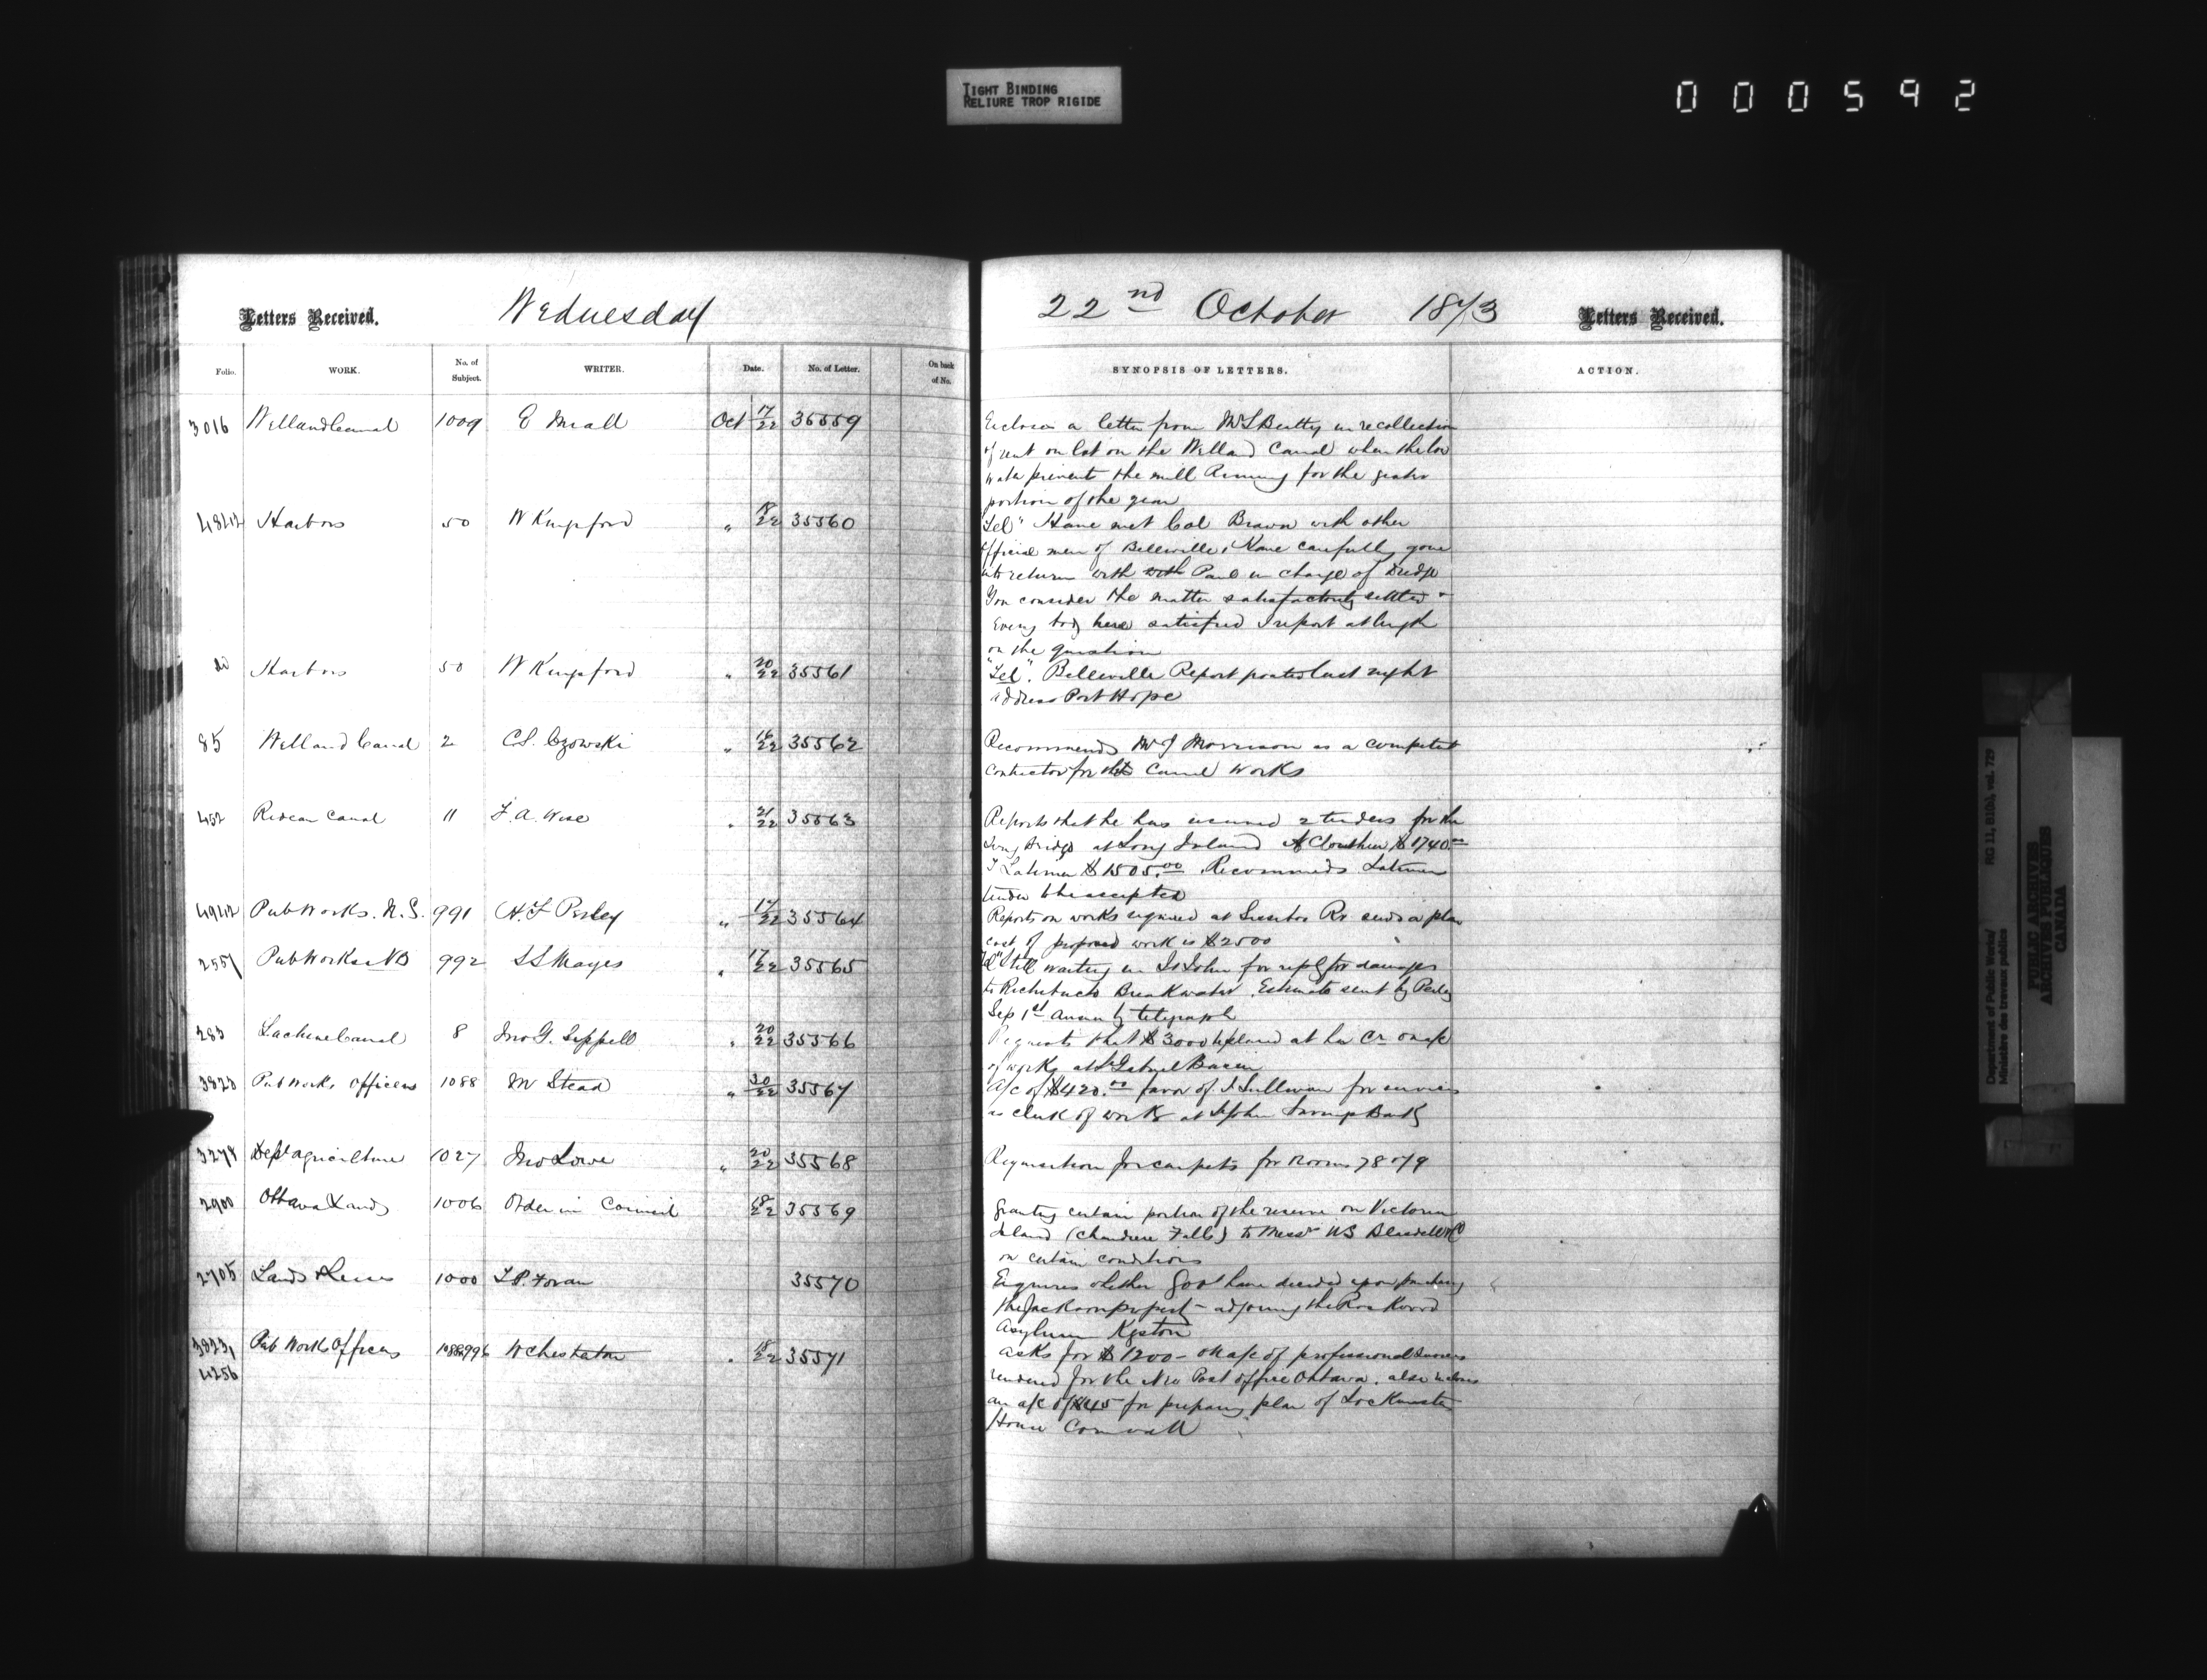 TIGHT BINDING
RELIURE TROP RIGIDE
000592
Letters Received. Wednesday 22nd October 1873 Letters Received.
Folio. WORK. No. of Subject. WRITER. Date. No. of Letter. On back of No. SYNOPSIS OF LETTERS. ACTION.
3016 Welland Canal 1009 E Miall Oct 17/22 35559 Encloses a letter from Mr L Beatty in re collection
of rent on lot on the Welland Canal when the low
water prevents the mill running for the greater
portion of the year
Harbors 50 W Kingsford " 18/22 35560 "Tel" Have met Col Brown with other
official men of Belleville, have carefully gone
into return with with Paul in charge of Dredge
You consider the matter satisfactorily settled
Every body here satisfied I report at length
on the question
do Harbors 50 W Kingsford " 20/22 35561 "Tel". Belleville Report posted last night
address Port Hope
85 Welland Canal 2 C.S. Czowski " 16/22 35562 Recommends Mr J Morrison as a competent
contractor for the Canal Works
452 Rideau Canal 11 F. A. Wise " 21/22 35563 Reports that he has received 2 tenders for the
Swing Bridge at Long Island A Clouthier $1740.00
T Latimer $1505.00 Recommends Latimer
tender be accepted
Pub Works. N.S. 991 H. F Perley " 17/22 35564 Reports on works required at River sends a plan
cost of proposed work is $2500
2557 Pub Works NB 992 S L Mayes " 17/22 35565 "Tel" Still waiting in St John for reply for damages
to Richibucto Breakwater. Estimate sent by Perley
Sep 1st answer by telegraph
283 Lachine Canal 8 Jno G. Sippell " 20/22 35566 Requests that $3000 be placed at his Cr on a/c
of works at St Gabriel Basin
3823 Pub Works Officers 1088 M Stead " 20/22 35567 A/c of $420.00 favor of J. Sullivan for services
as clerk of works at St John Savings Bank
3278 Dept Agriculture 1027 Jno Lowe " 20/22 35568 Requisition for carpets for Rooms 78 & 79
2900 Ottawa Lands 1006 Order in Council 18/22 35569 Granting certain portion of the reserve on Victoria
Island (Chaudiere Falls) to Messrs on certain conditions
2705 Lands & Leases 1000 T. P. Foran 35570 Enquires whether Govt have decided upon purchasing
the Jackson property adjoining the Rockwood
Asylum Kgston
3823, 4256 Pub Work Officers 1088, 996 W Chesterton " 18/22 35571 asks for $1200 - on a/c of professional services
rendered for the New Post Office Ottawa. also encloses
an a/c of $45 for preparing plan of Lockmaster
House Cornwall
Department of Public Works/ RG 11, B1(b), vol. 729
Ministère des travaux publics
PUBLIC ARCHIVES
ARCHIVES PUBLIQUES
CANADA